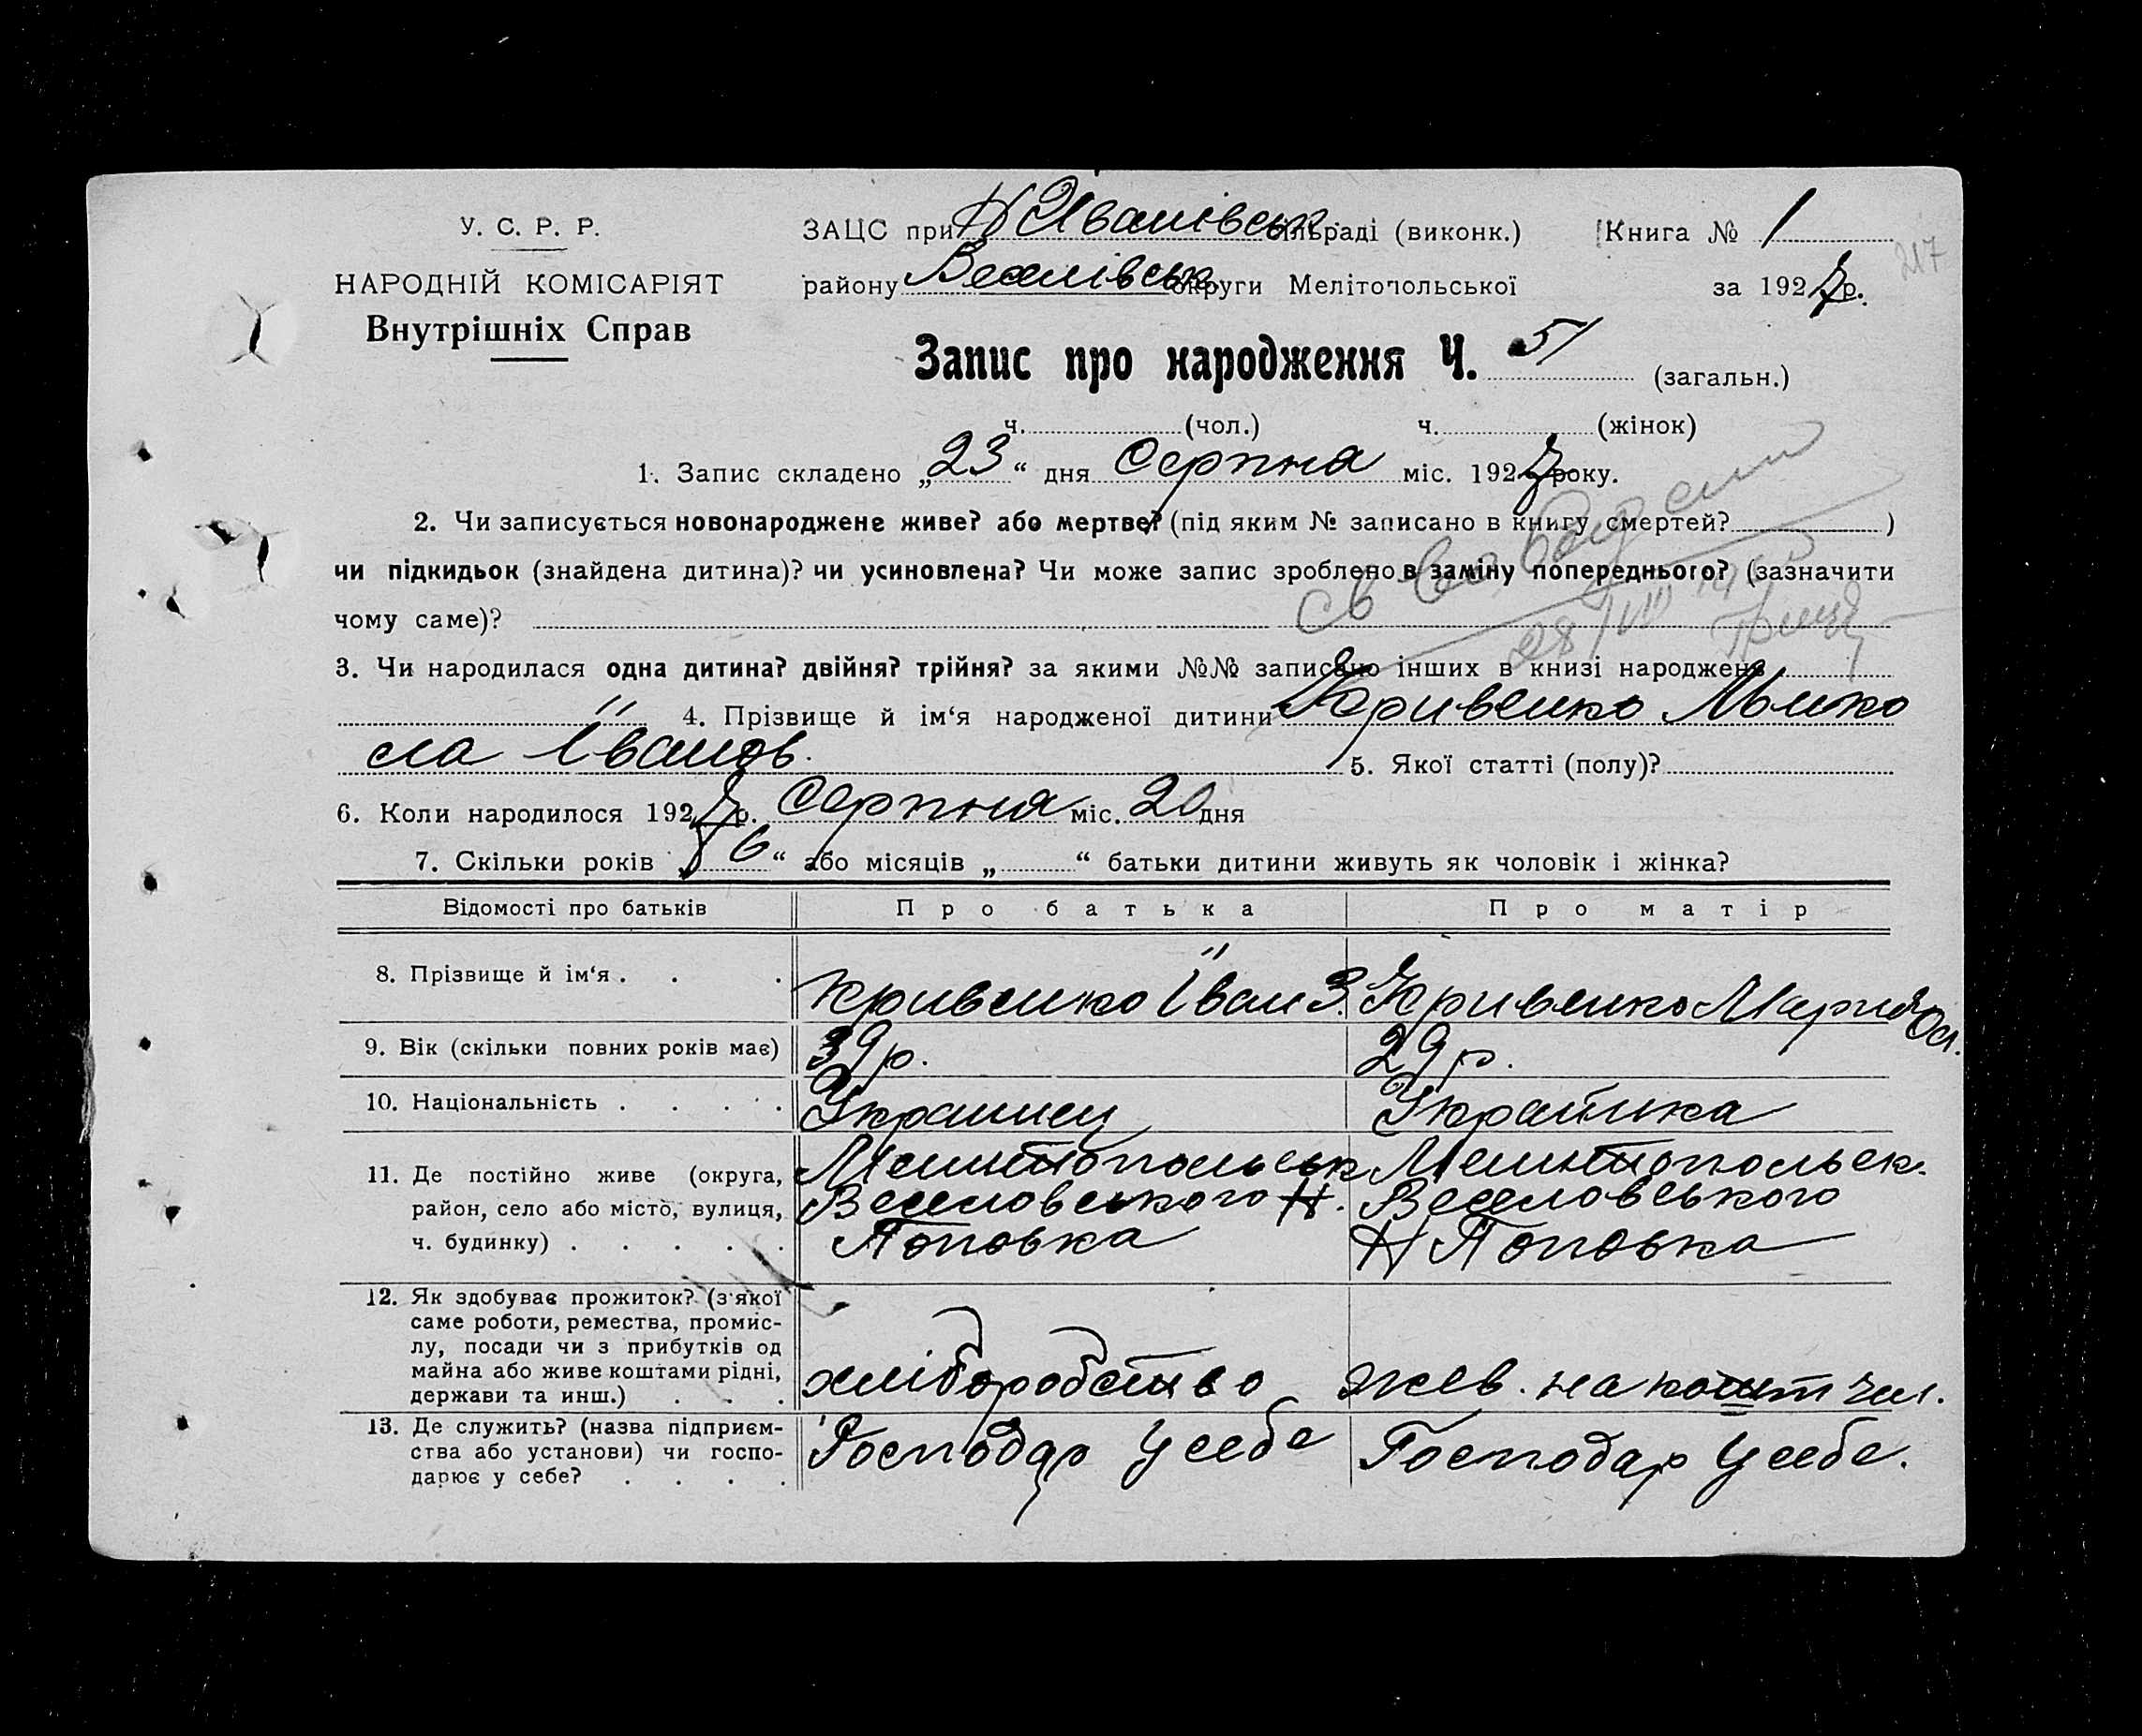 У. С. Р. Р.
НАРОДНІЙ КОМІСАРІЯТ
Внутрішніх Справ
ЗАЦС при Н Іванівськ. сільраді (виконк.) Книга № 1
217
району Веселівськ. округи Мелітопольської за 1927 р.
Запис про народження Ч. 51 (загальн.)
ч. (чол.) ч. (жінок)
1. Запис складено „23“ дня Серпня міс. 1927 року.
2. Чи записується новонароджене живе? або мертве? (під яким № записано в книгу смертей? )
чи підкидьок (знайдена дитина)? чи усиновлена? Чи може запис зроблено в заміну попереднього? (зазначити
чому саме)?
28/VIII
3. Чи народилася одна дитина? двійня? трійня? за якими №№ записано інших в книзі народжень
4. Прізвище й ім‘я народженої дитини Кривенко Мико
ла Іванов. 5. Якої статті (полу)?
6. Коли народилося 1927 р. Серпня міс. 20 дня
7. Скільки років „6“ або місяців „ “ батьки дитини живуть як чоловік і жінка?
Відомості про батьків Про батька Про матір
8. Прізвище й ім‘я . . . Кривенко Іван З. Кривенко Мария Ол.
9. Вік (скільки повних років має) 39 р. 29 р.
10. Національність . . . . Украинец Українка
11. Де постійно живе (округа, Мелитопольськ Мелитопольск.
район, село або місто, вулиця, Веселовського Н. Веселовського
ч. будинку) . . . . . Поповка Н Поповка
12. Як здобуває прожиток? (з якої
саме роботи, ремества, промис-
лу, посади чи з прибутків од
майна або живе коштами рідні,
держави та инш.) . . . хліборобство жев. на кошт чол.
13. Де служить? (назва підприєм-
ства або установи) чи госпо-
дарює у себе? . . . . Господар у себе Господар у себе.